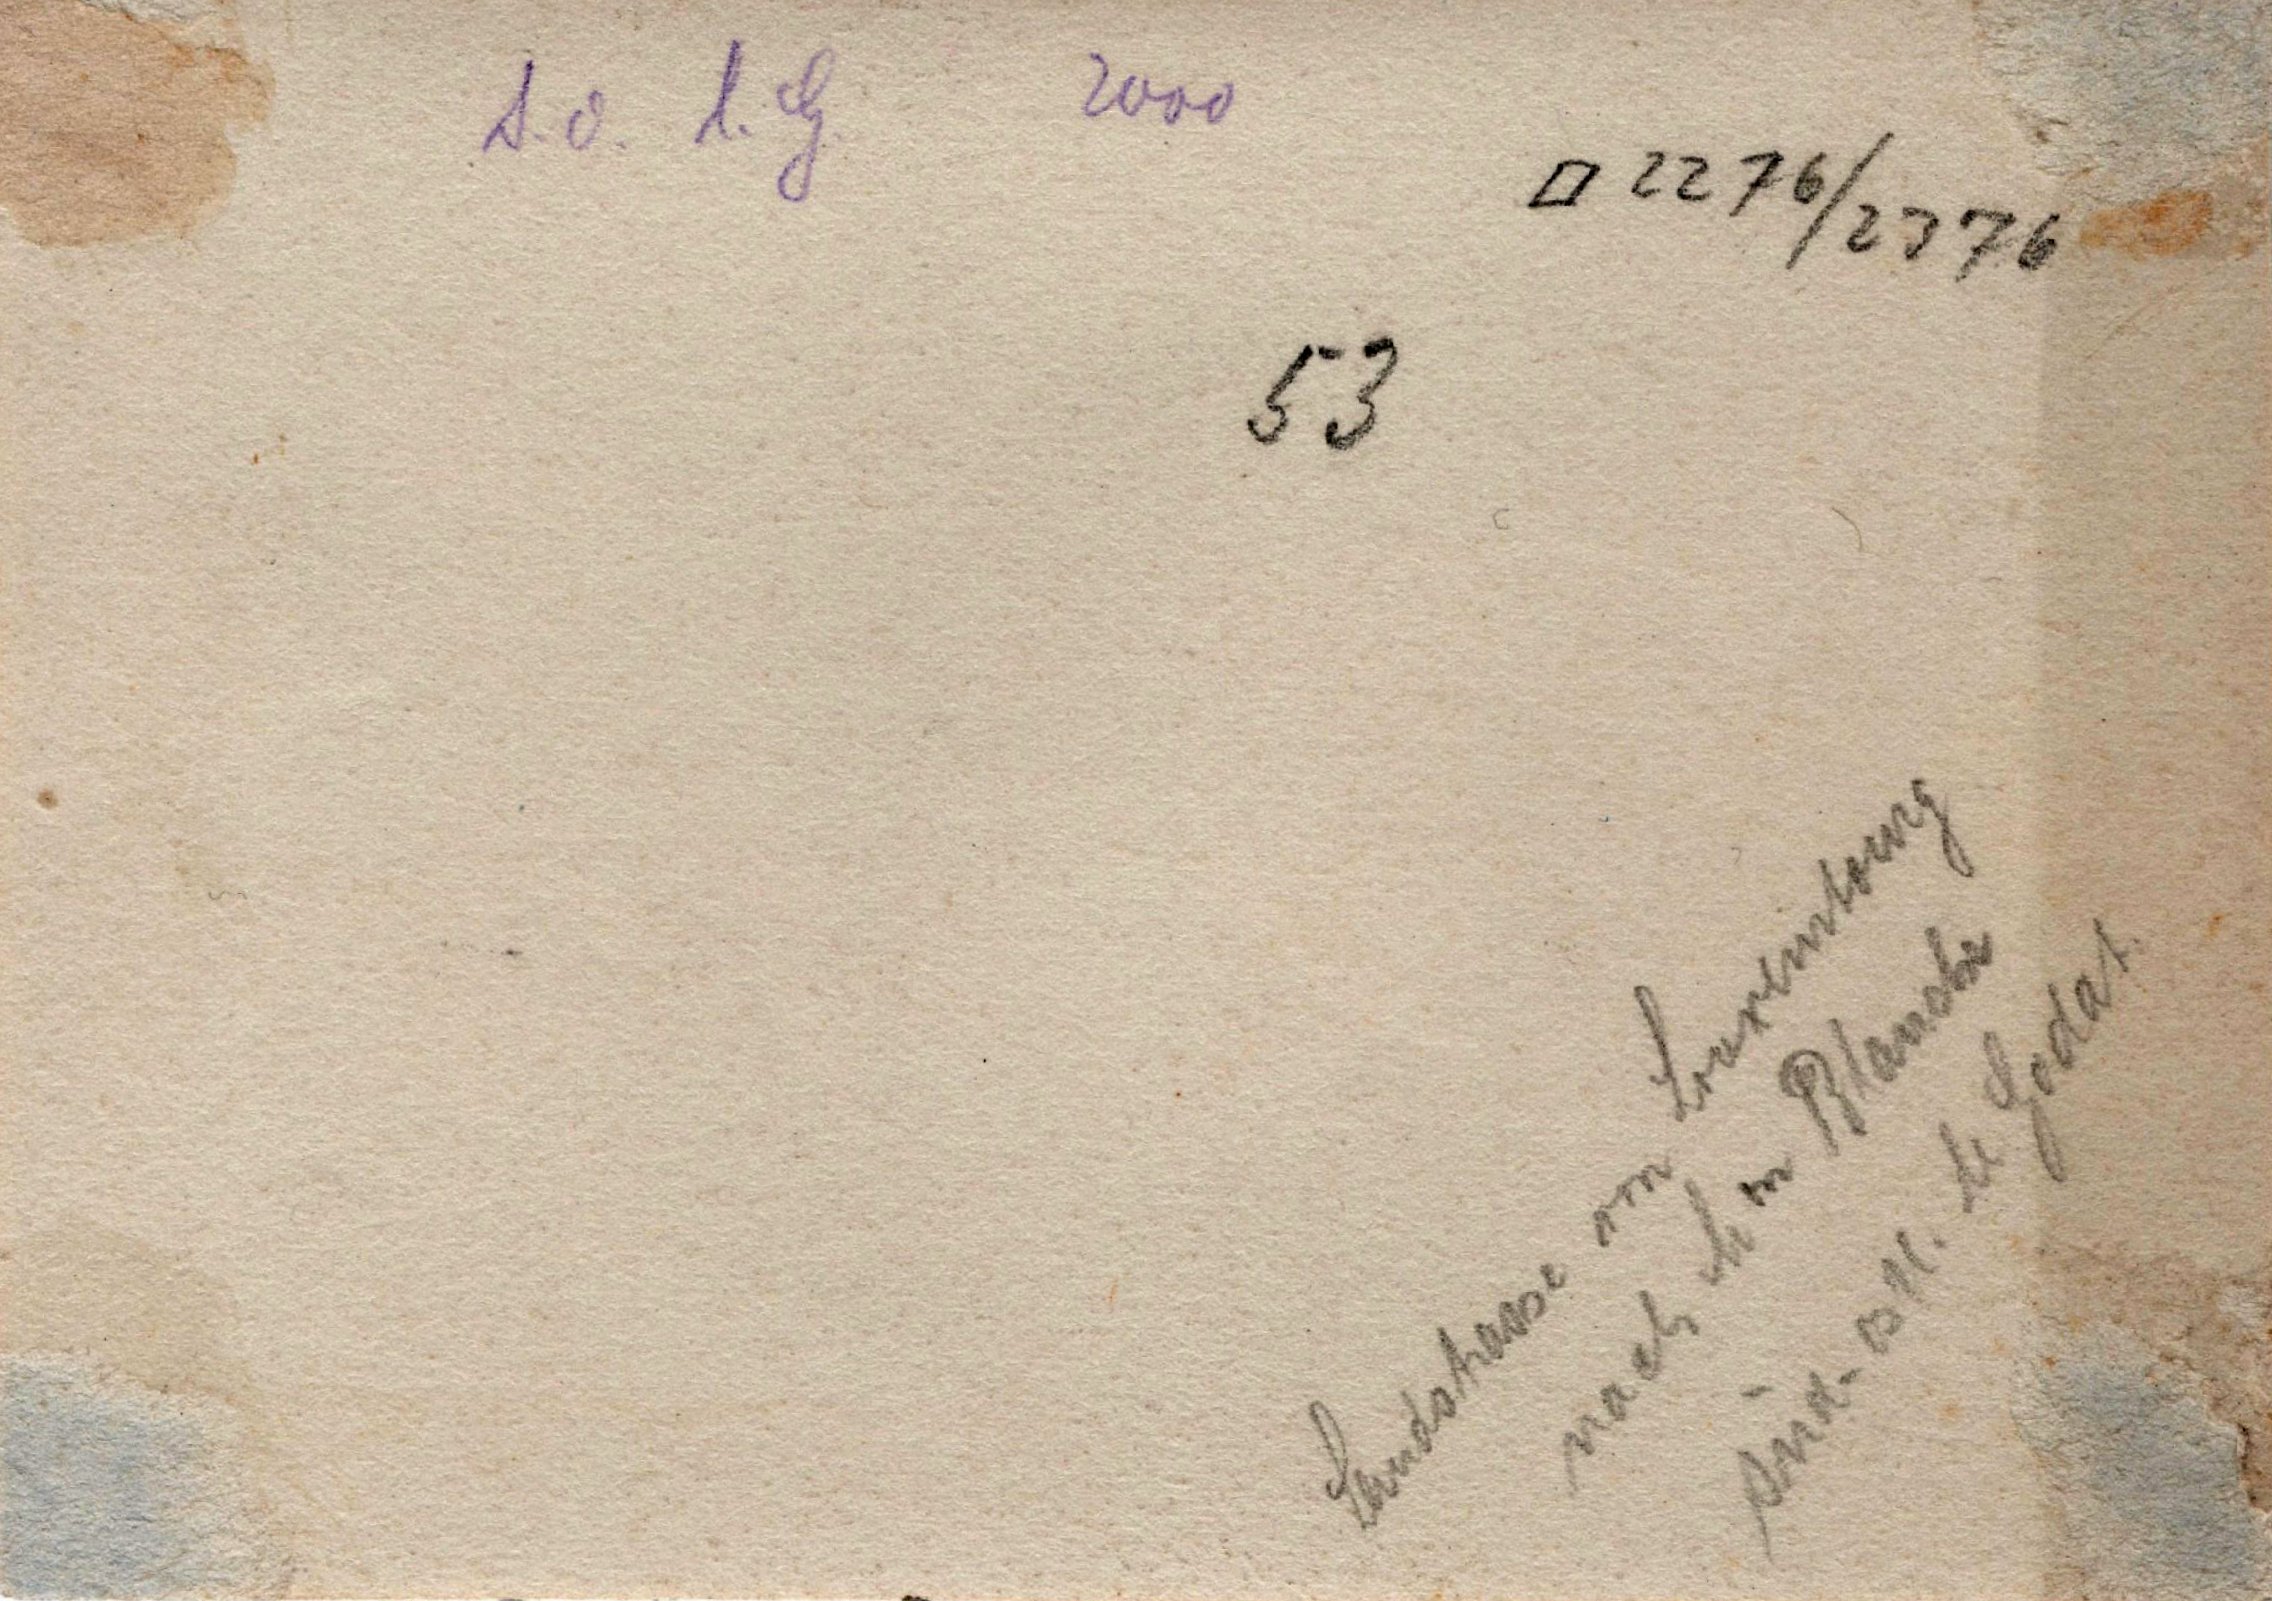 s.o. l. G. 2000
▱ 2276/2376
53
Landstrasse von Luxemburg
nach Mon Blanche
süd-östl. le Godat.